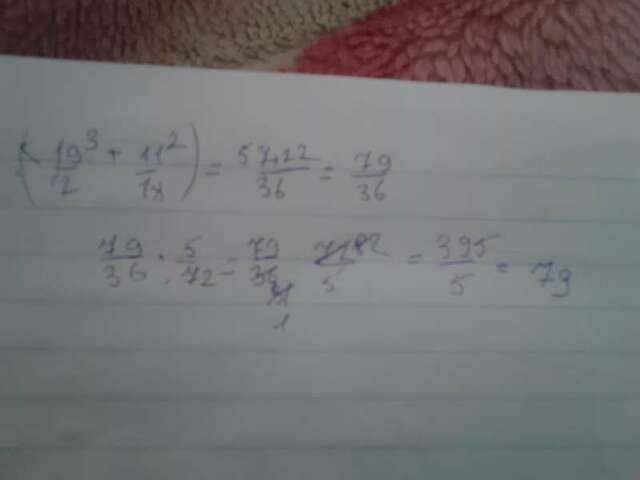 ( 19/2 ³ + 11/18 ² ) = 57+22/36 = 79/36
79/36 : 5/72 = 79/36 1 72 2/5 = 395/5 = 79